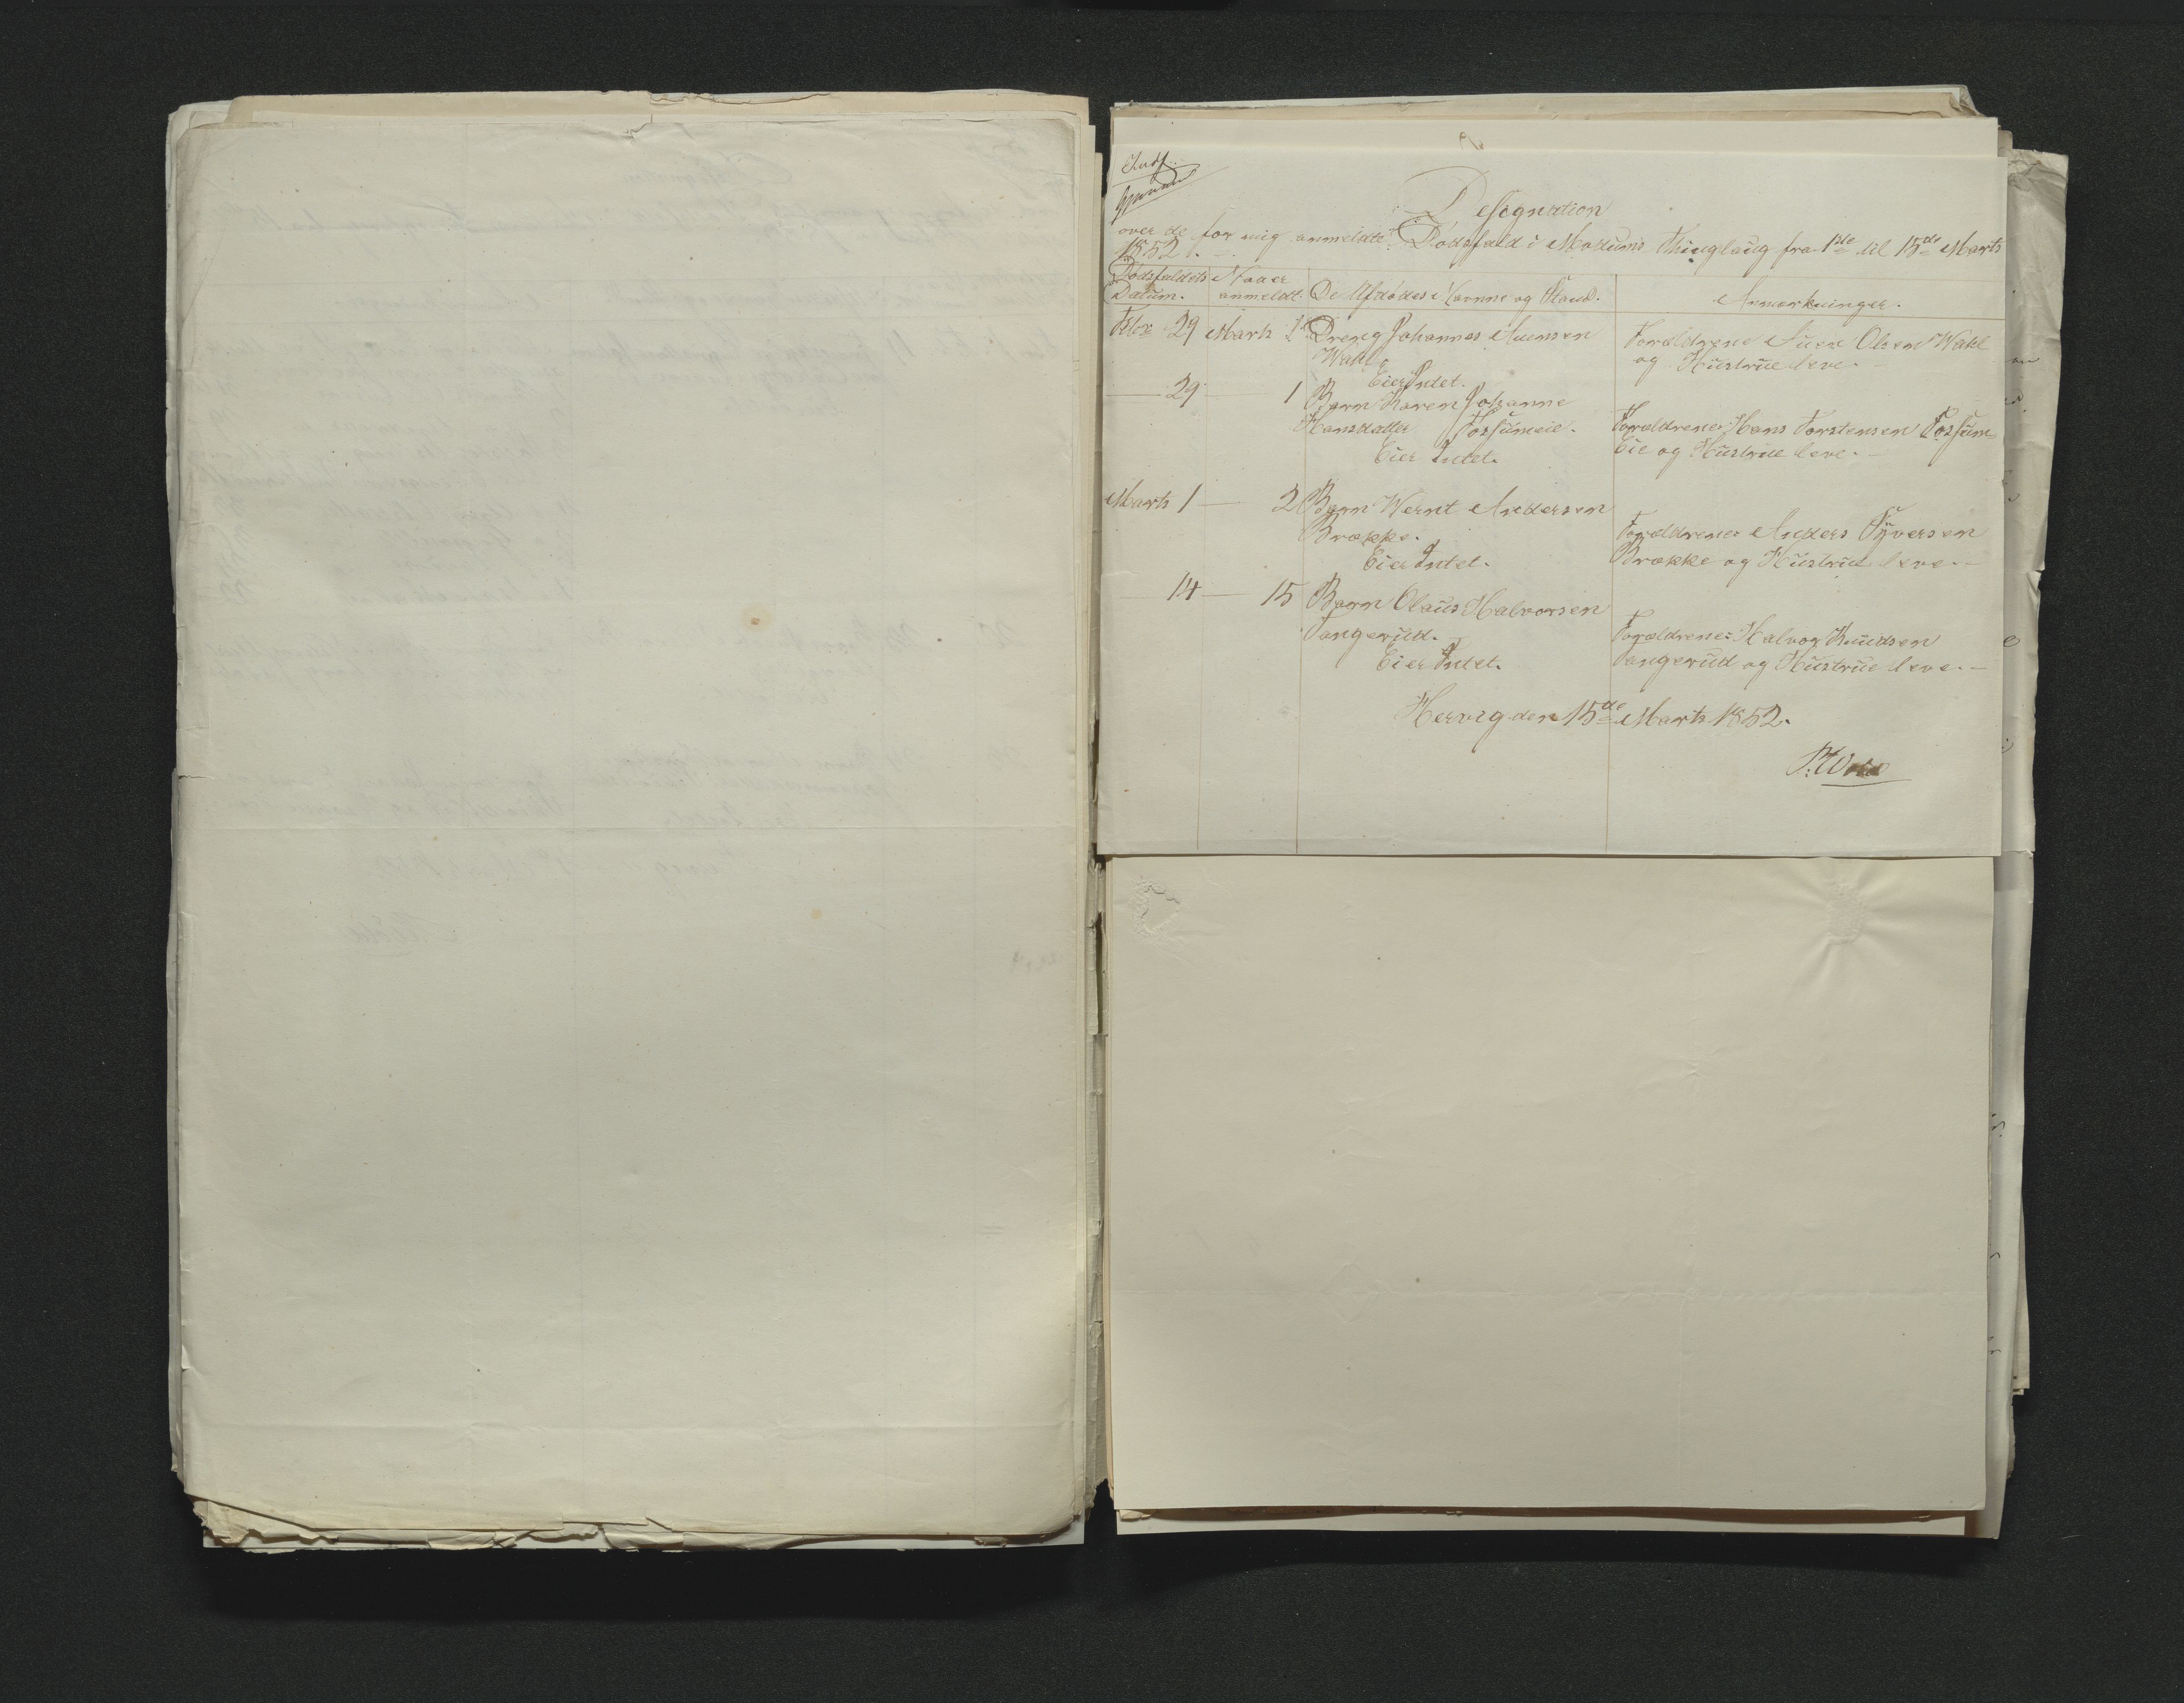 Indf.
Designation
over de for mig anmeldte Dødsfald i Modums Thinglaug fra 1ste til 15de Marts
1852.
Dødsfaldets Datum. Naar er anmeldt. De Afdødes Navne og Stand. Anmærkninger.
Febr 29 Marts 1 Dreng Johannes
Wahl
Eier Intet.
Forældrene Olsen Wahl
og Hustrue leve.
29 1 Barn Karen Johanne
Hansdatter Fossumeie.
Eier Intet.
Forældrene Hans Torstensen Fossum
Eie og Hustrue leve.
Marts 1 2 Barn Wernt Andersen
Brække.
Eier Intet.
Forældrene Anders Syversen
Brække og Hustrue leve.
14 15 Barn Olaus Halvorsen
Tangerud.
Eier Intet.
Forældrene Halvor Knudsen
Tangerud og Hustrue leve.
Hervig den 15de Marts 1852.